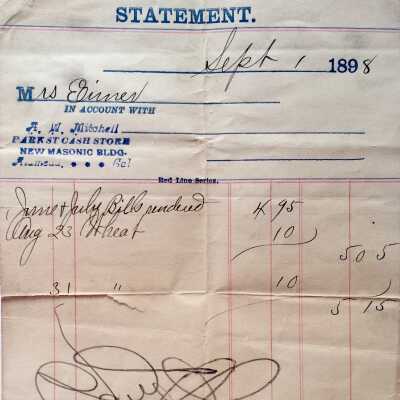 STATEMENT.
Sept 1 1898
Mrs Eimer
IN ACCOUNT WITH
A. W. Mitchell
PARK ST CASH STORE
NEW MASONIC BLDG.
Alameda, Cal
Red Line Series.
June & July Bills rendered 4 95
Aug 23 Wheat 10
5 05
31 " 10
5 15